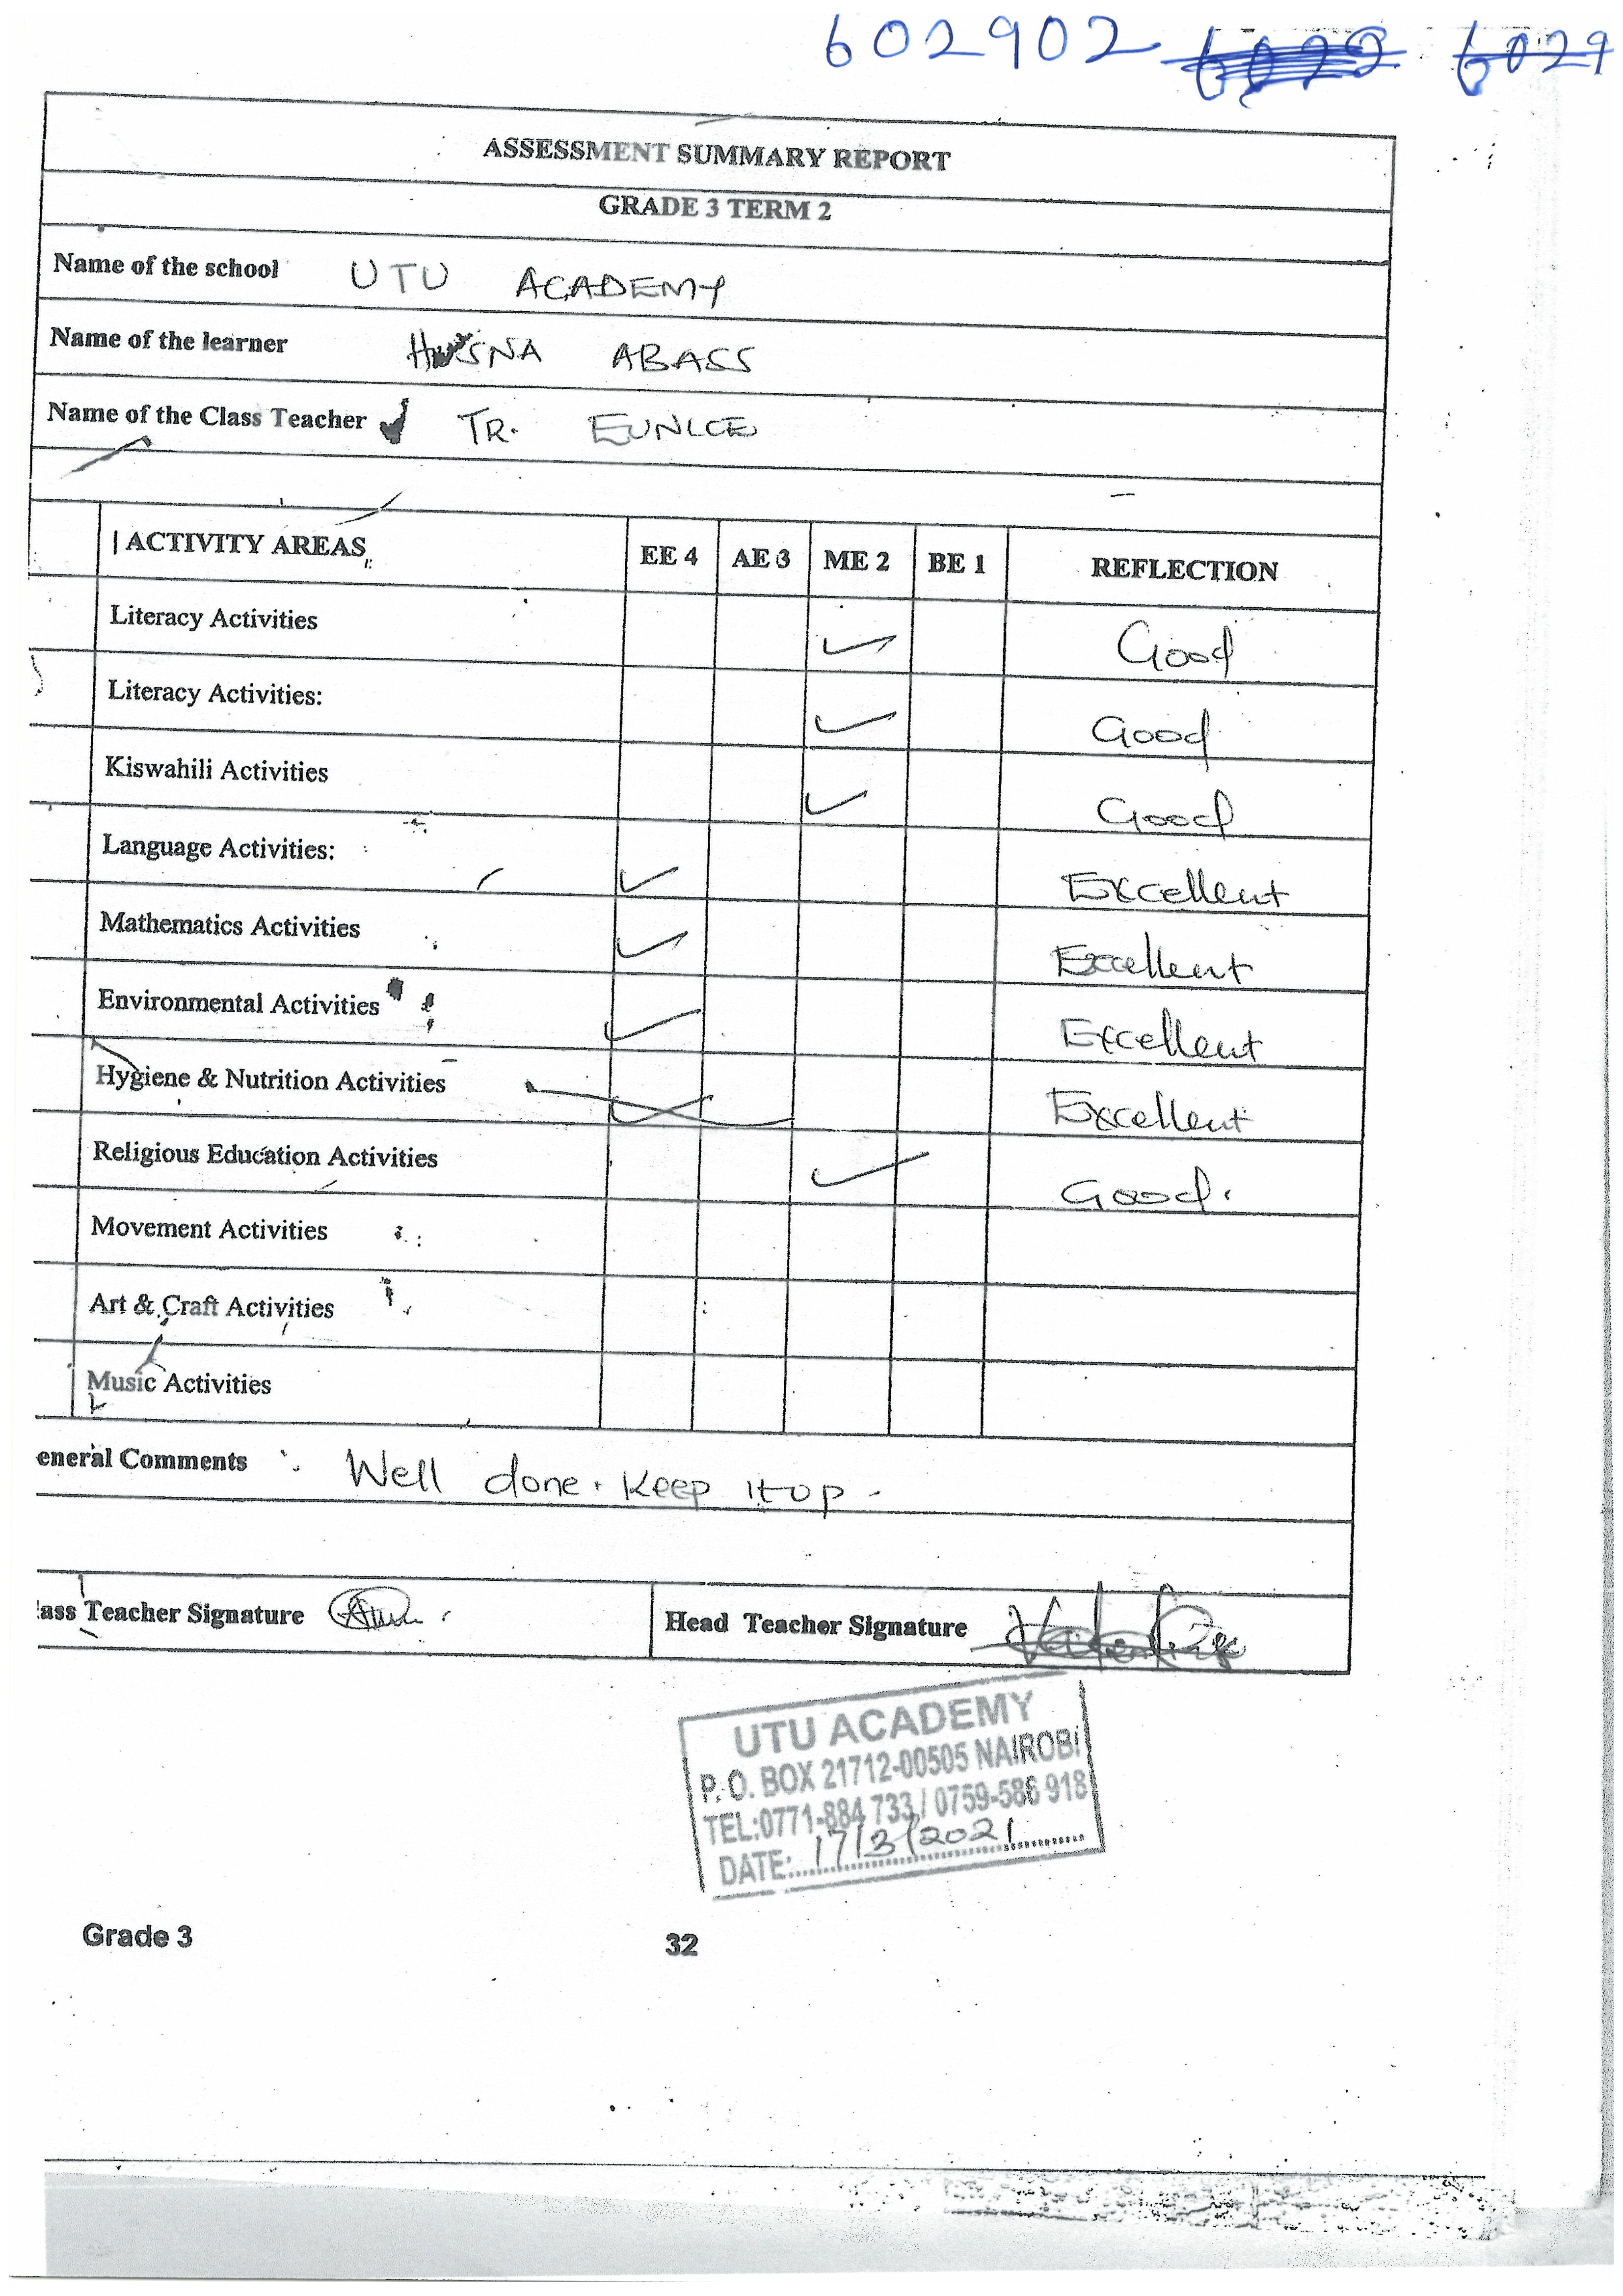 602902 6029
ASSESSMENT SUMMARY REPORT
GRADE 3 TERM 2
Name of the school UTU ACADEMY
Name of the learner HUSNA ABASS
Name of the Class Teacher TR. EUNICE
ACTIVITY AREAS EE 4 AE 3 ME 2 BE 1 REFLECTION
Literacy Activities ✓ Good
Literacy Activities: ✓ Good
Kiswahili Activities ✓ Good
Language Activities: ✓ Excellent
Mathematics Activities ✓ Excellent
Environmental Activities ✓ Excellent
Hygiene & Nutrition Activities ✓ Excellent
Religious Education Activities ✓ Good.
Movement Activities
Art & Craft Activities
Music Activities
eneral Comments Well done. Keep it up.
lass Teacher Signature Head Teacher Signature
UTU ACADEMY
P.O. BOX 21712-00505 NAIROBI
TEL:0771-884 733/ 0759-586 918
DATE: 17/3/2021
Grade 3 32